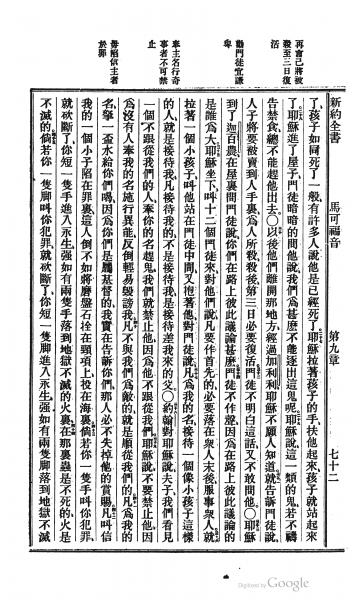 新約全書　馬可福音　第九章　七十二
了、孩子如同死了一般、有許多人說他是已經死了。耶穌拉著孩子的手、扶他起來、孩子就站起來
了。耶穌進了屋子、門徒暗暗的問他說、我們為甚麼不能逐出這鬼呢。耶穌說、這一類的鬼、若不禱
告禁食、總不能趕他出去。○以後他們離開那地方、經過加利利、耶穌不願人知道、就告訴門徒說、
人子將要被賣到人手裏、為人所殺、殺後第三日必要復活。門徒不明白這話、又不敢問他。○耶穌
到了迦百農、在屋裏問門徒說、你們在路上彼此議論甚麼。門徒不作聲、因為在路上彼此議論的
是誰為大。耶穌坐下、叫十二個門徒來、對他們說、凡要作首先的、必要落在衆人末後、服事衆人。就
拉著一個小孩子、叫他站在門徒中間、又抱著他、對門徒說、凡為我的名、接待一個像小孩子這樣
的人、就是接待我、凡接待我的、不是接待我、是接待差我來的父。○約翰對耶穌說、夫子、我們看見
一個不跟從我們的人、奉你的名趕鬼、我們就禁止他、因為他不跟從我們。耶穌說、不要禁止他、因
為沒有人奉我的名施行異能、反倒輕易毀謗我。凡不與我們為敵的、就是順從我們的。凡為我的
名、擧一盃水給你們喝、因為你們是屬基督的、我實在告訴你們、那人必不失掉他的賞賜。凡叫信
我的一個小子陷在罪裏、這人倒不如將磨盤石拴在頸項上、投在海裏。倘若你一隻手叫你犯罪、
就砍斷了、你短一隻手進入永生、强如有兩隻手落到地獄不滅的火裏、在那裏蟲是不死的、火是
不滅的。倘若你一隻脚叫你犯罪、就砍斷了、你短一隻脚進入永生、强如有兩隻脚落到地獄不滅
再言己將被
殺至三日復
活
勸門徒宜謙
卑
奉主名行奇
事者不可禁
止
毋陷信主者
於罪
Digitized by Google